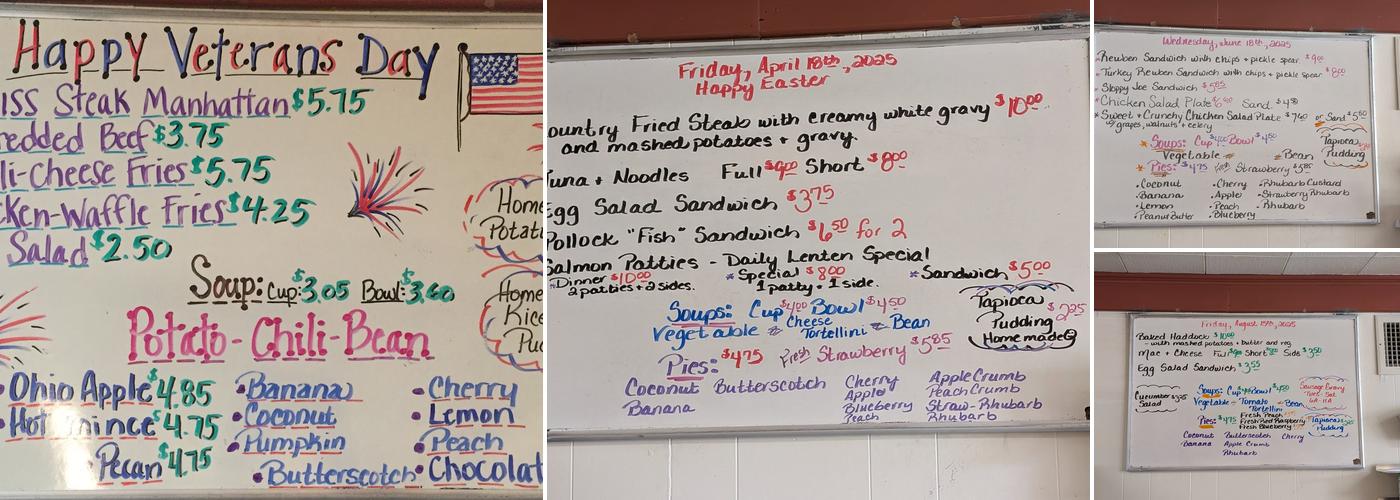 Happy Veterans Day
iss Steak Manhattan $5.75
redded Beef $3.75
li-Cheese Fries $5.75
ken-Waffle Fries $4.25
Salad $2.50
Soup: Cup: $3.05 Bowl: $3.60
Potato-Chili-Bean
• Ohio Apple $4.85
• Hot mince $4.75
Pecan $4.75
• Banana
• Coconut
• Pumpkin
• Butterscotch
• Cherry
• Lemon
• Peach
• Chocolat
Home
Potat
Home
Rice
Pu
Friday, April 18th, 2025
Happy Easter
ountry Fried Steak with creamy white gravy $10.00
and mashed potatoes + gravy.
una + Noodles Full $9.00 Short $8.00
Egg Salad Sandwich $3.75
Pollock "Fish" Sandwich $6.50 for 2
Salmon Patties - Daily Lenten Special
*Dinner $10.00 *Special $8.00 *Sandwich $5.00
2 patties + 2 sides. 1 patty + 1 side.
Soups: Cup $4.00 Bowl $4.50
Vegetable Cheese Tortellini Bean
Tapioca
Pudding $2.25
Homemade
Pies: $4.75 Fresh Strawberry $5.85
Coconut Butterscotch Cherry Apple Crumb
Banana Apple Peach Crumb
Blueberry Straw-Rhubarb
Peach Rhubarb
Wednesday, June 18th, 2025
Reuben Sandwich with chips + pickle spear $9.00
Turkey Reuben Sandwich with chips + pickle spear $8.00
Sloppy Joe Sandwich $5.85
Chicken Salad Plate Sand.
Sweet + Crunchy Chicken Salad Plate or Sand
w/ grapes, walnuts + celery
Soups: Cup $4.00 Bowl $4.50
Vegetable Bean
Tapioca
Pudding
Pies: $4.75 Fresh Strawberry $5.85
• Coconut • Cherry • Rhubarb Custard
• Banana • Apple • Strawberry Rhubarb
• Lemon • Peach • Rhubarb
• Peanut Butter • Blueberry
Friday, August 15th, 2025
Baked Haddock $10.00
- with mashed potatoes + butter and veg
Mac + Cheese Full Short Side $3.50
Egg Salad Sandwich $3.55
Cucumber
Salad
Soups: Cup Bowl $4.50
Vegetable - Tomato - Bean
Tortellini
Sausage Gravy
Tues - Sat
Pies: $4.75 Fresh Peach
Fresh Red Raspberry
Fresh Blueberry
Tapioca
Pudding
Coconut Butterscotch Cherry
Banana Apple Crumb
Rhubarb